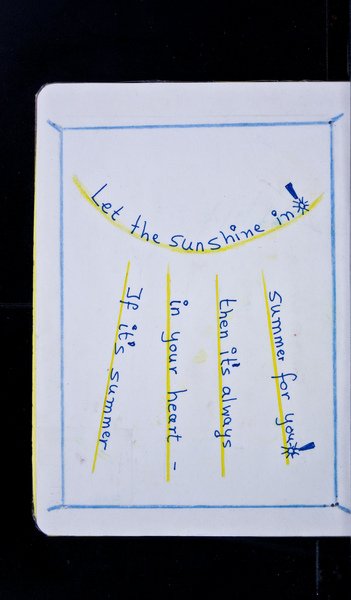 Let the sunshine in!
If it's summer
in your heart -
then it's always
summer for you!